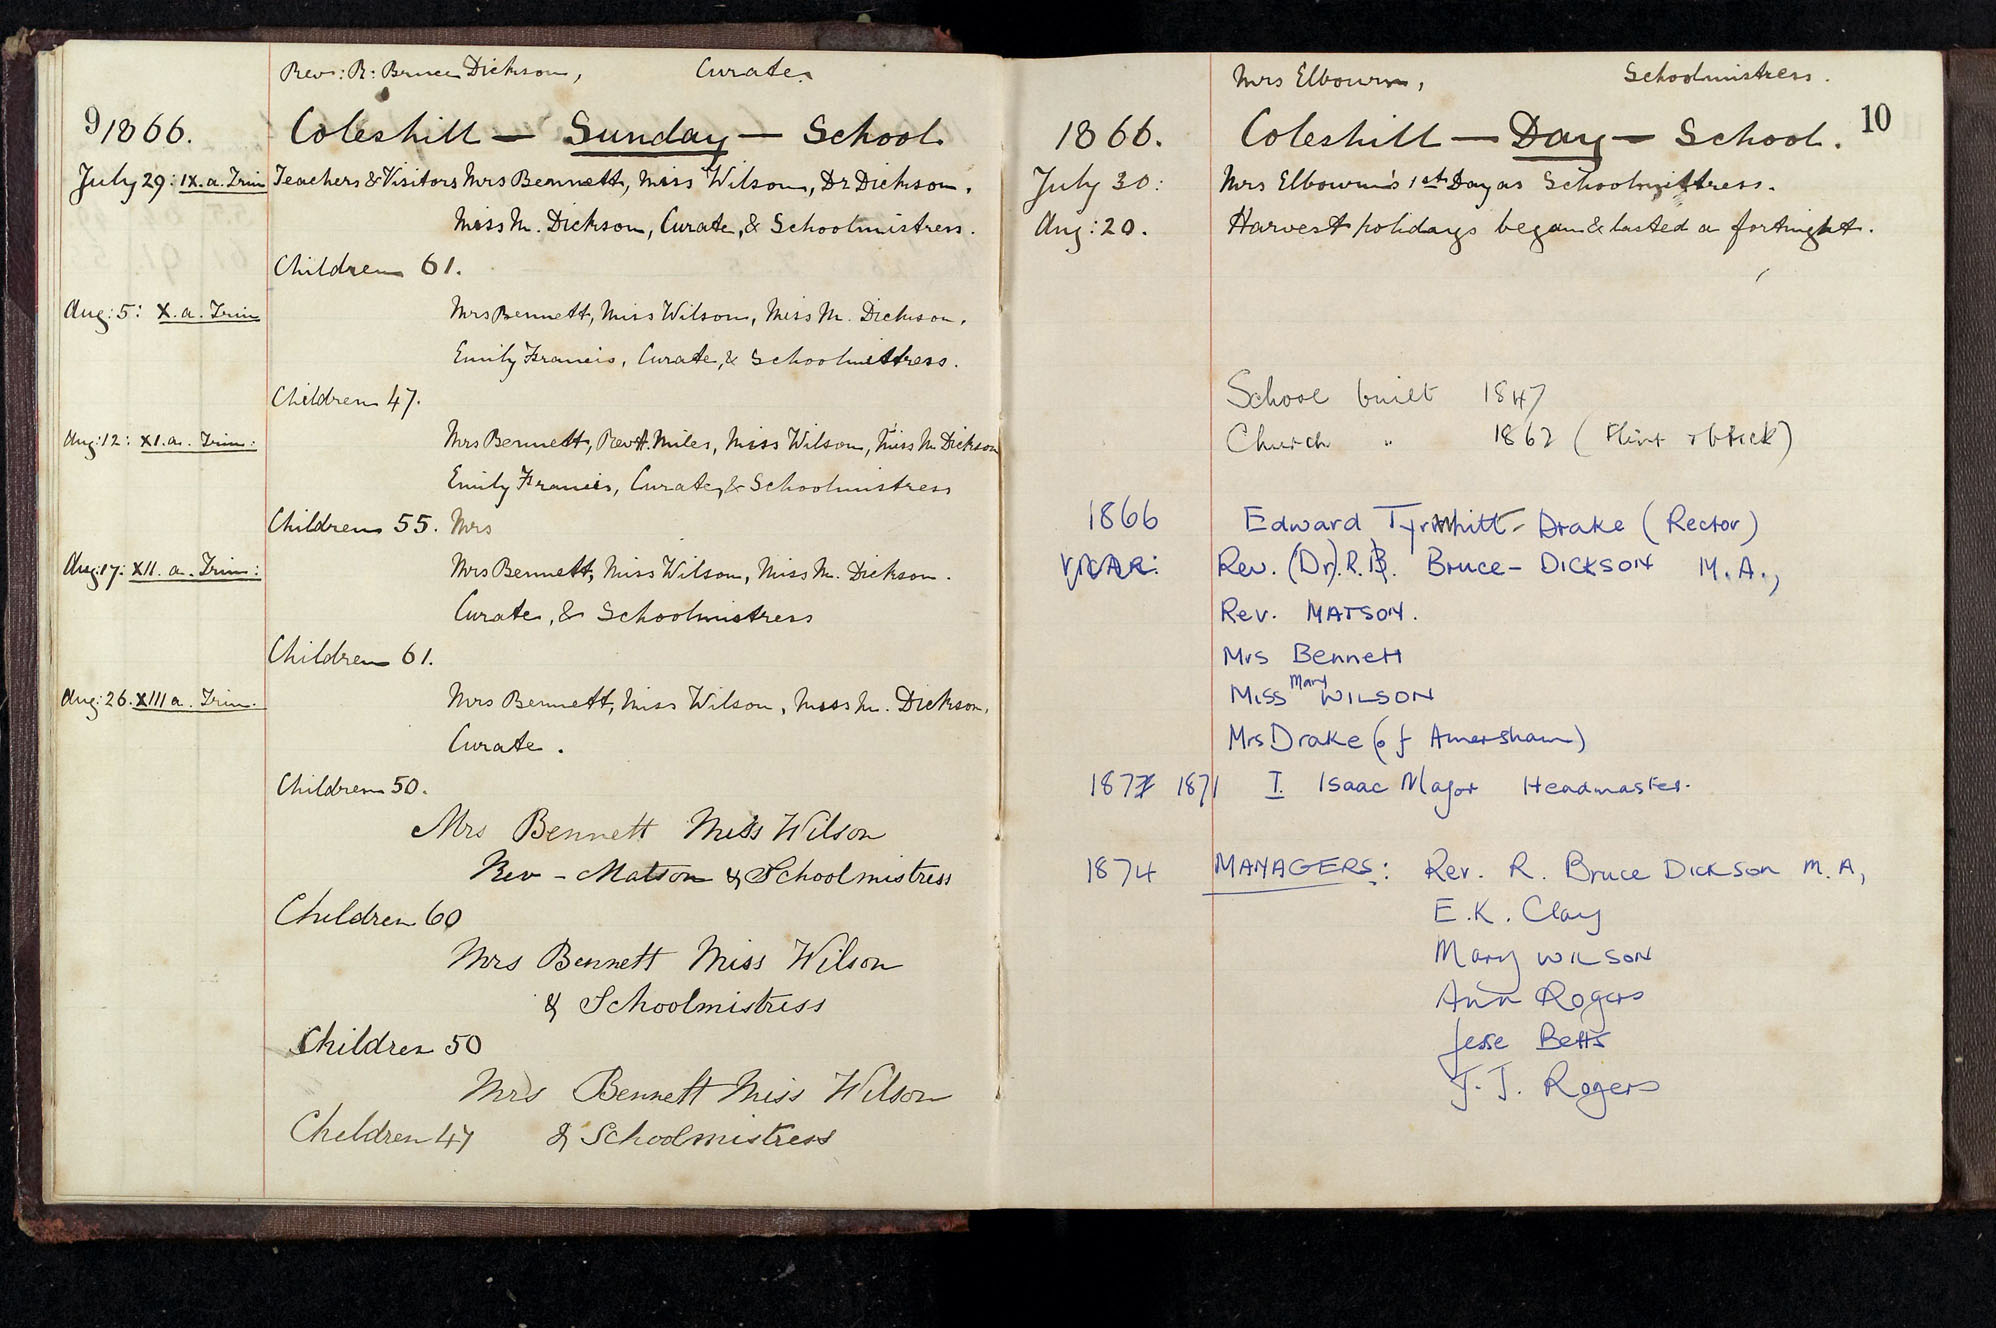 Rev: R: Bruce Dickson, Curate.
9 1866. Coleshill — Sunday — School.
July 29: IX. a. Trin Teachers & Visitors Mrs Bennett, Miss Wilson, Dr Dickson,
Miss M. Dickson, Curate, & Schoolmistress.
Children 61.
Aug: 5: X. a. Trin Mrs Bennett, Miss Wilson, Miss M. Dickson,
Emily Francis, Curate, & Schoolmistress.
Children 47.
Aug: 12: XI. a. Trin: Mrs Bennett, Rev H. Miles, Miss Wilson, Miss M. Dickson
Emily Francis, Curate, & Schoolmistress
Children 55. Mrs
Aug: 17: XII. a. Trin: Mrs Bennett, Miss Wilson, Miss M. Dickson.
Curate, & Schoolmistress
Children 61.
Aug: 26. XIII a. Trin. Mrs Bennett, Miss Wilson, Miss M. Dickson,
Curate.
Children 50.
Mrs Bennett Miss Wilson
Rev - Matson & Schoolmistress
Children 60
Mrs Bennett Miss Wilson
& Schoolmistress
Children 50
Mrs Bennett Miss Wilson
Children 47 & Schoolmistress
Mrs Elbourn, Schoolmistress.
1866. Coleshill — Day — School. 10
July 30: Mrs Elbourn's 1st Day as Schoolmistress.
Aug: 20. Harvest holidays began & lasted a fortnight.
School built 1847
Church " 1862 (Flint & brick)
1866 Edward Tyrwhitt-Drake (Rector)
VICAR: Rev. (Dr). R. B. Bruce-DICKSON M.A.,
Rev. MATSON.
Mrs Bennett
Miss Mary WILSON
Mrs Drake (of Amersham)
1871 I. Isaac Major Headmaster.
1874 MANAGERS: Rev. R. Bruce DICKSON M.A,
E.K. Clay
Mary WILSON
Ann Rogers
Jesse Betts
J. J. Rogers